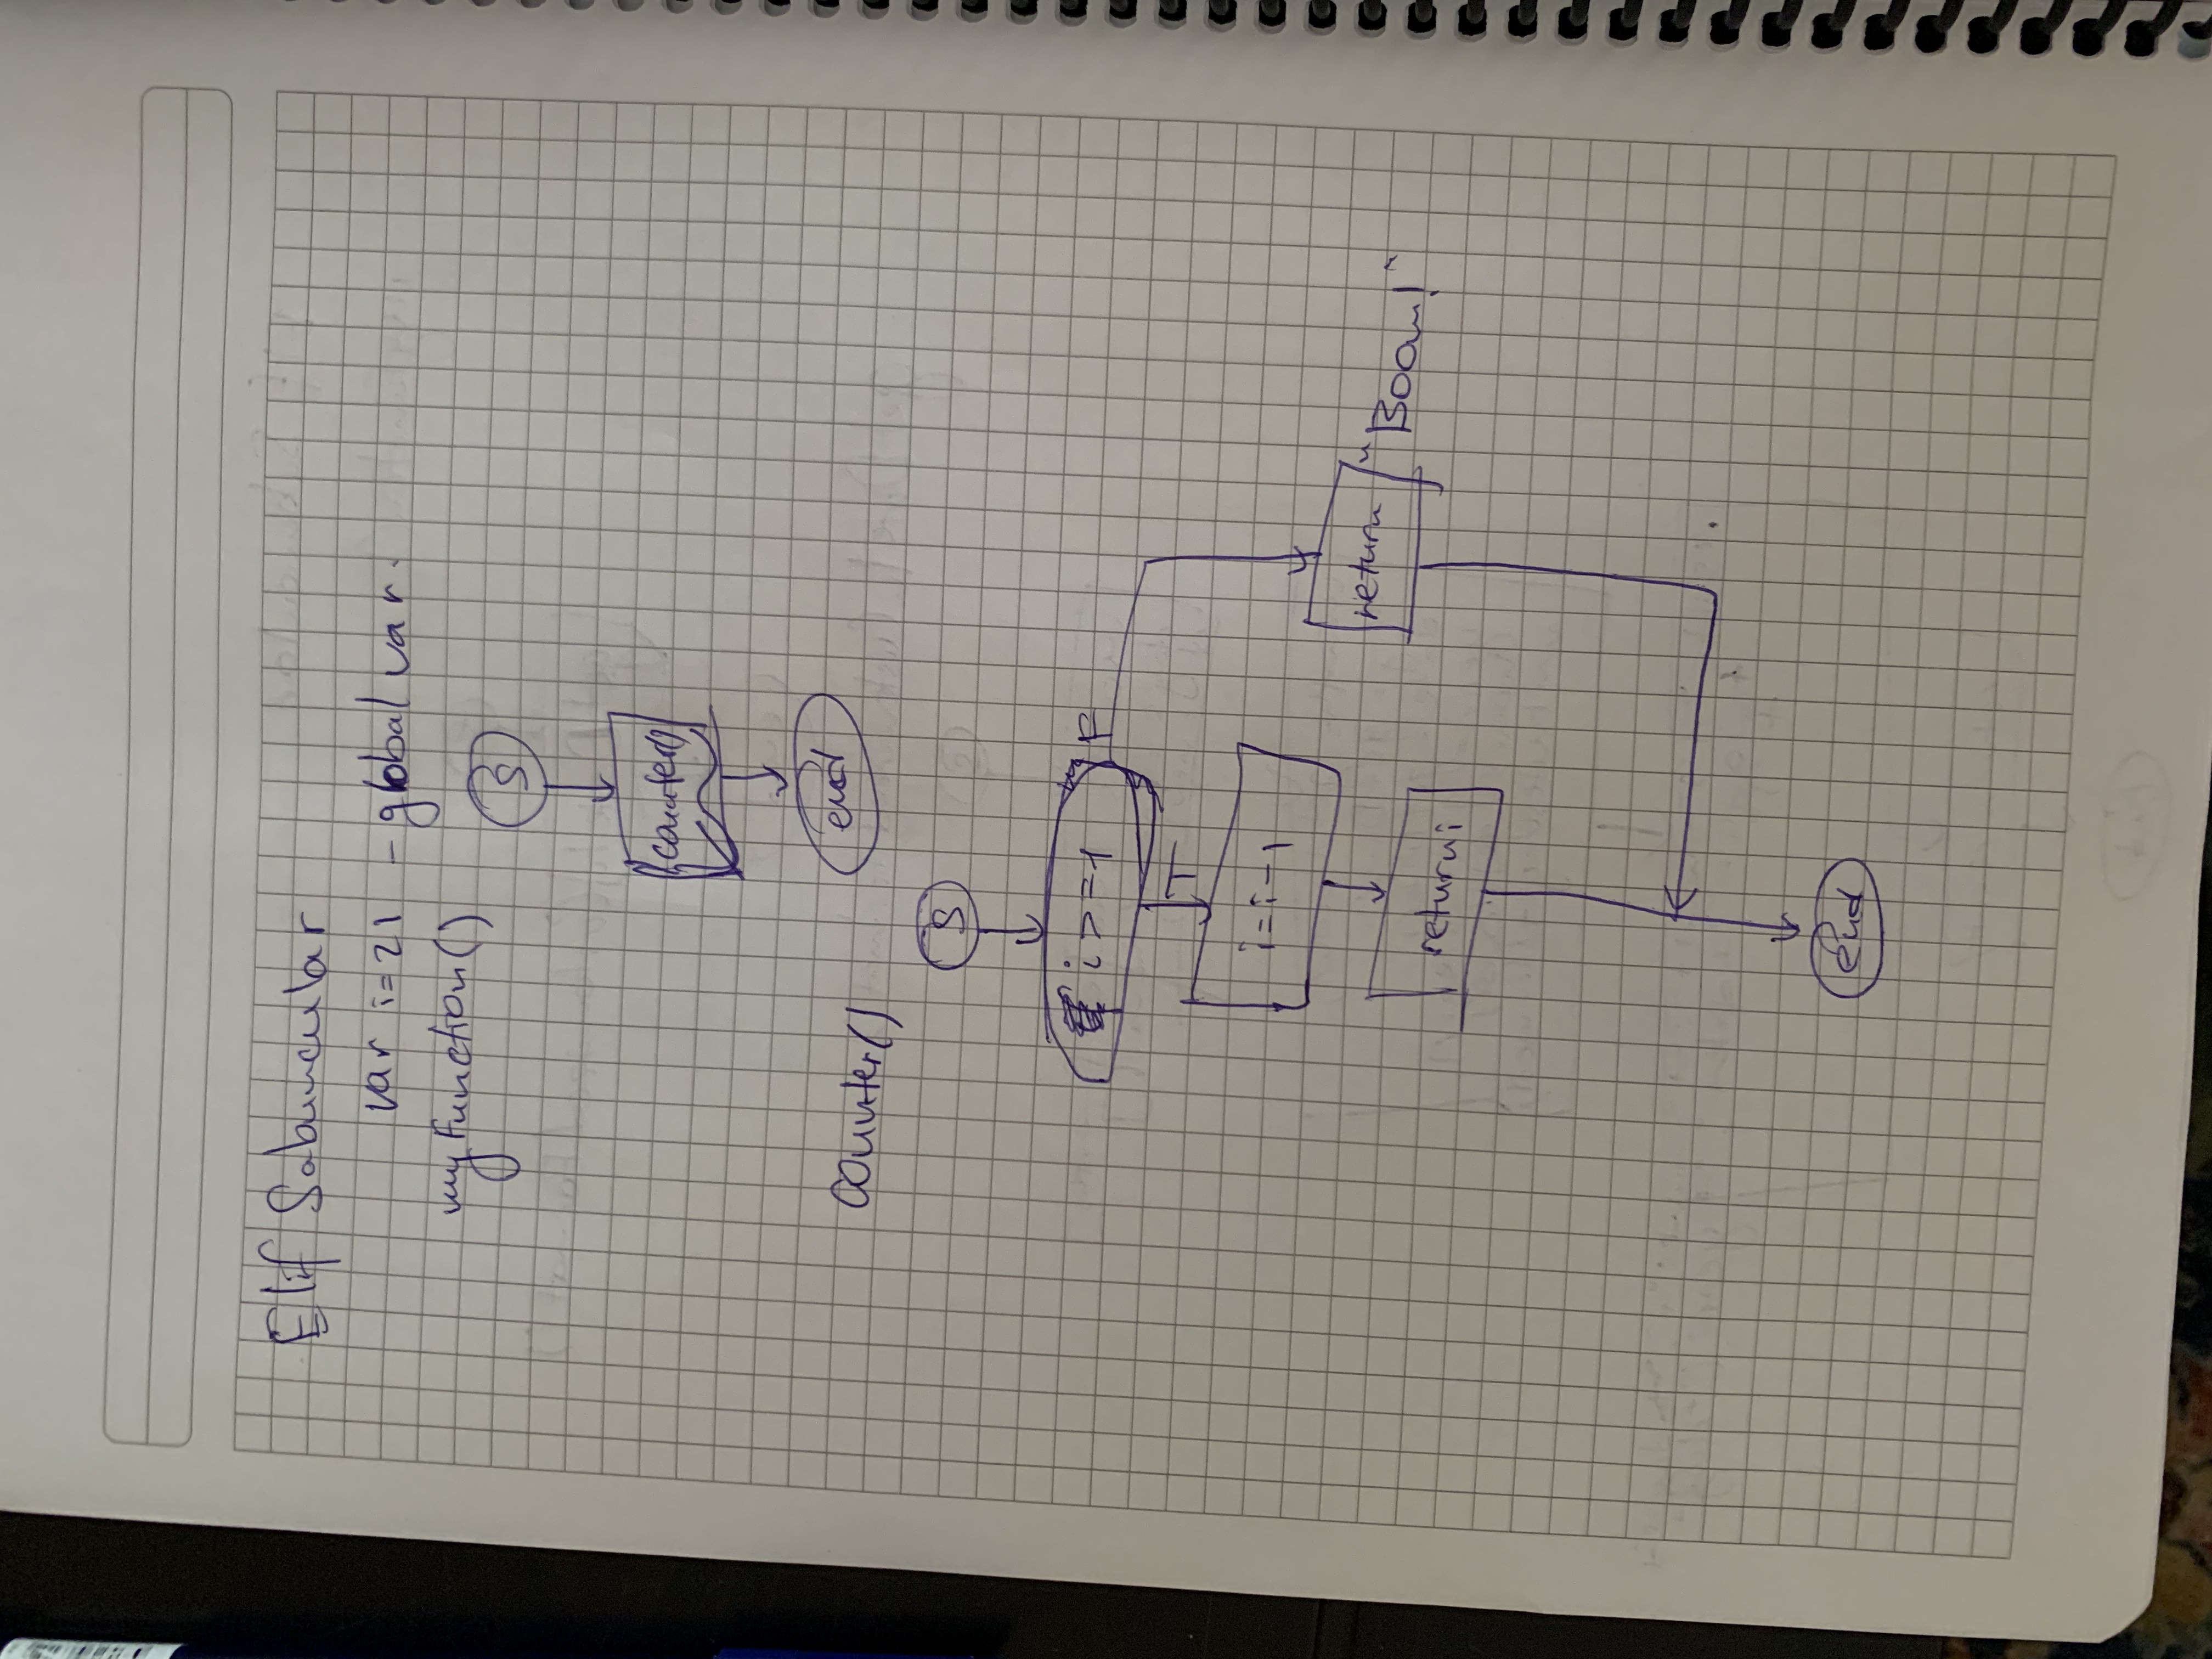 Elif Sabuncular
var i=21 - global var.
myFunction()
S
counter()
end
Counter()
S
i>=1
F
T
i=i-1
return "Boom!"
return i
end